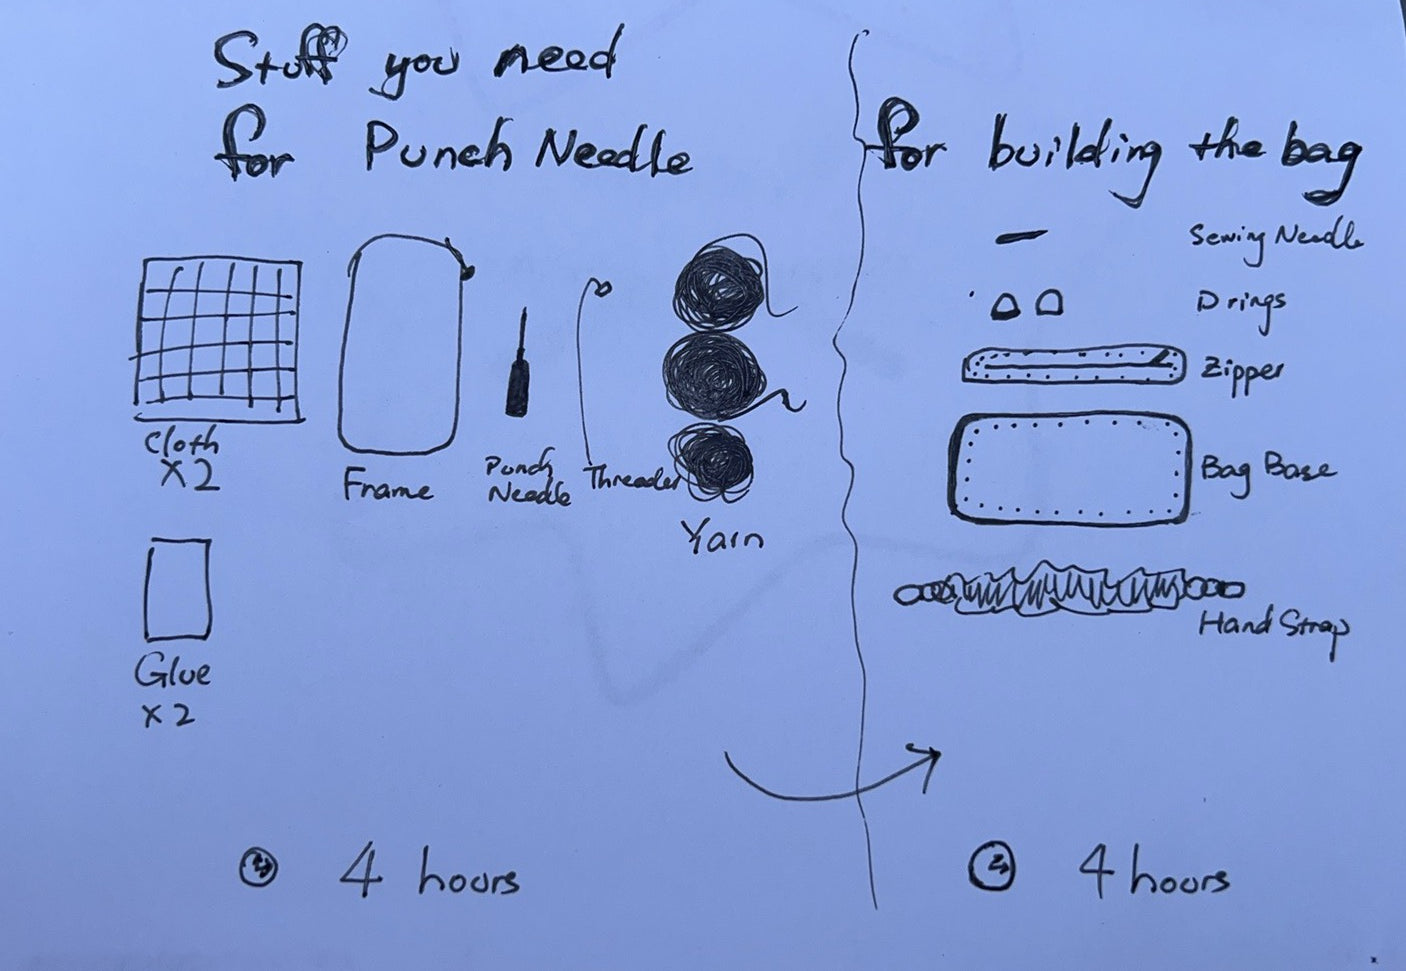 Stuff you need
for Punch Needle
Cloth
X2
Frame
Punch
Needle
Threader
Yarn
Glue
X2
4 hours
for building the bag
Sewing Needle
D rings
Zipper
Bag Base
Hand Strap
4 hours